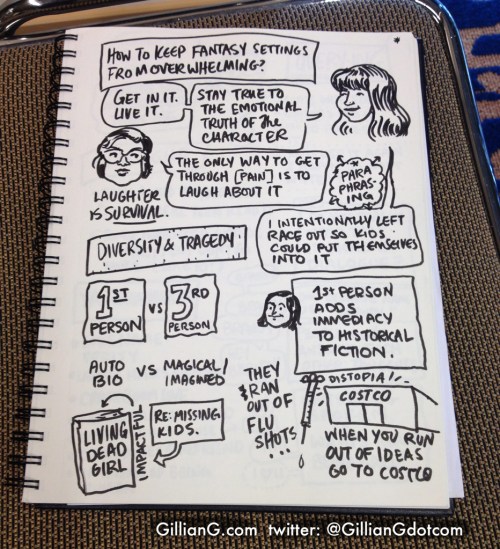 HOW TO KEEP FANTASY SETTINGS
FROM OVERWHELMING?
GET IN IT.
LIVE IT.
STAY TRUE TO
THE EMOTIONAL
TRUTH OF the
CHARACTER
THE ONLY WAY TO GET
THROUGH [PAIN] IS TO
LAUGH ABOUT IT
LAUGHTER
IS SURVIVAL.
PARA
PHRAS-
ING
I INTENTIONALLY LEFT
RACE OUT SO KIDS
COULD PUT THEMSELVES
INTO IT
DIVERSITY & TRAGEDY
1ST
PERSON
VS
3RD
PERSON
1ST PERSON
ADDS
IMMEDIACY
TO HISTORICAL
FICTION.
AUTO
BIO
VS
MAGICAL/
IMAGINED
LIVING
DEAD
GIRL
IMPACTFUL
RE: MISSING
KIDS.
THEY
RAN
OUT OF
FLU
SHOTS
...
DISTOPIA!
COSTCO
WHEN YOU RUN
OUT OF IDEAS
GO TO COSTCO
GillianG.com twitter: @GillianGdotcom